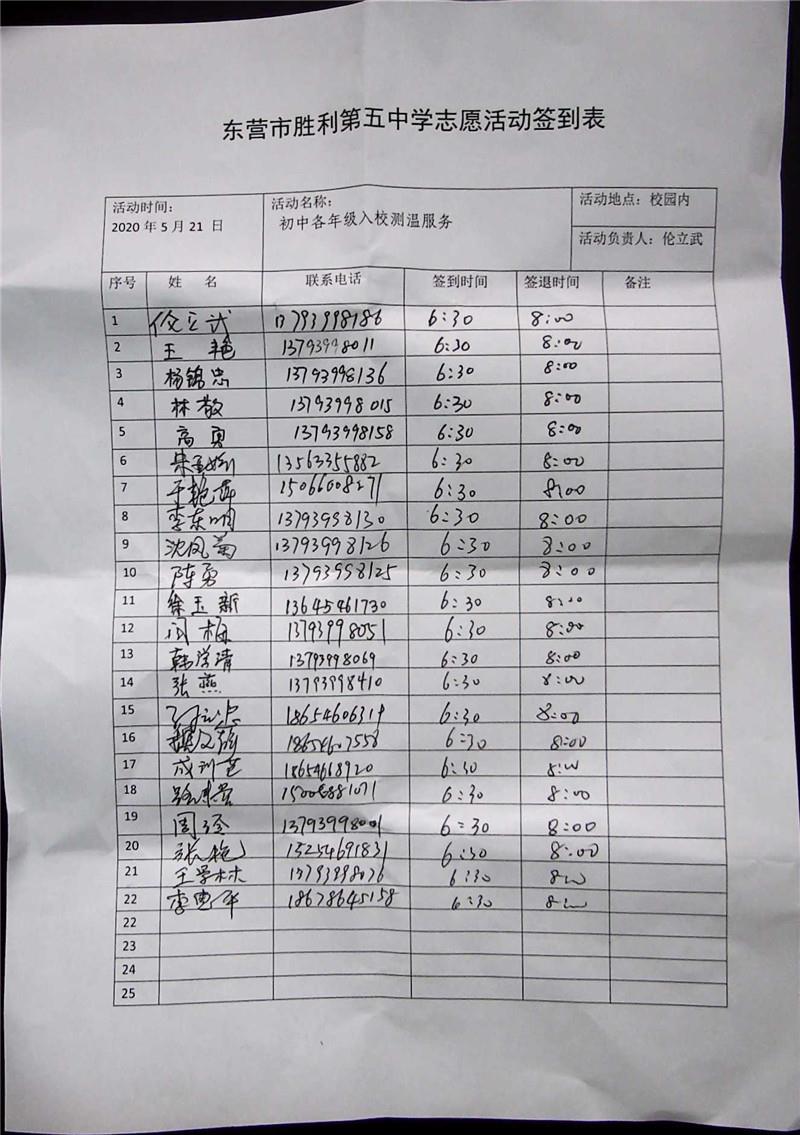 东营市胜利第五中学志愿活动签到表
活动时间： 活动名称： 活动地点：校园内
2020 年 5 月 21 日 初中各年级入校测温服务
活动负责人：伦立武
序号 姓 名 联系电话 签到时间 签退时间 备注
1 伦立武 13793998186 6:30 8:00
2 王 艳 13793998011 6:30 8:00
3 杨锦忠 13793998136 6:30 8:00
4 林敬 13793998015 6:30 8:00
5 高勇 13793998158 6:30 8:00
6 13563355882 6:30 8:00
7 于艳萍 15066008271 6:30 8:00
8 李东明 13793998130 6:30 8:00
9 沈凤菊 13793998126 6:30 8:00
10 陈勇 13793998125 6:30 8:00
11 徐玉新 13645461730 6:30 8:00
12 闫梅 13793998051 6:30 8:00
13 韩学清 13793998069 6:30 8:00
14 张燕 13793998410 6:30 8:00
15 18654606319 6:30 8:00
16 18654607558 6:30 8:00
17 18654668920 6:30 8:00
18 6:30 8:00
19 周 13793998001 6:30 8:00
20 张艳 13254691831 6:30 8:00
21 王学林 13793998076 6:30 8:00
22 李 平 18678645158 6:30 8:00
22
23
24
25